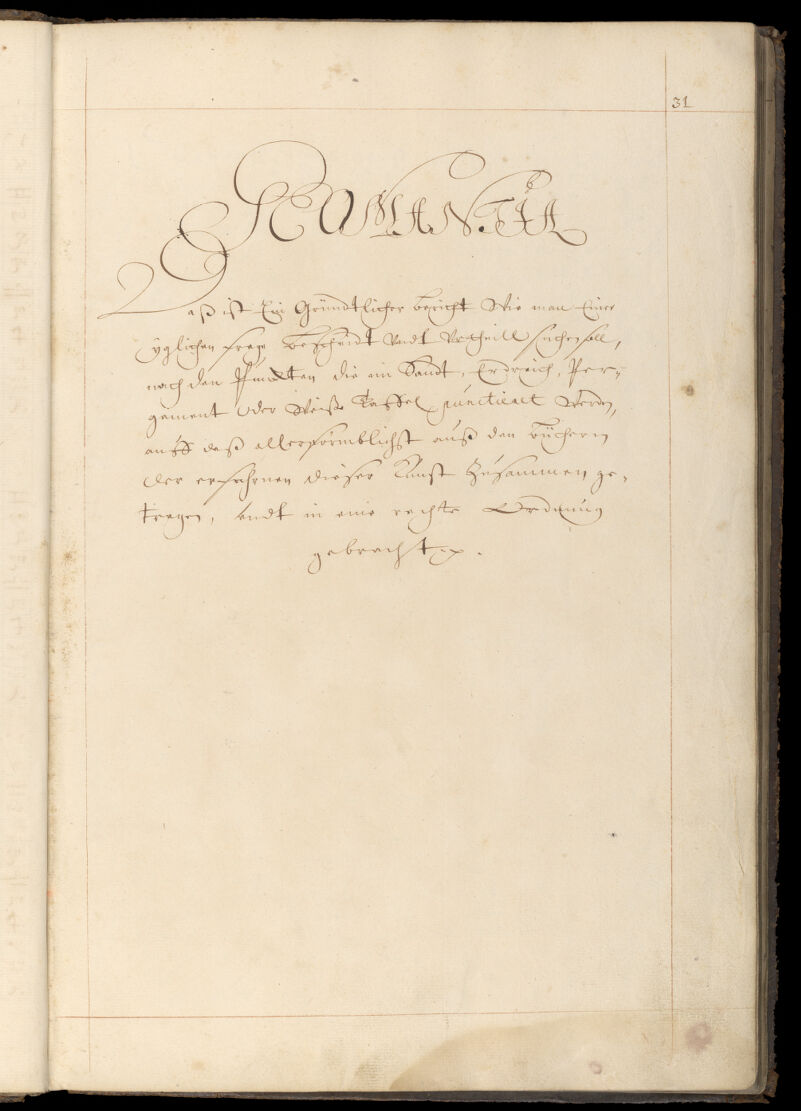 31
GEOMANTIA
Daß ist Ein Gründtlicher bericht Wie man Einer
yglichen frag bescheidt vndt Vrtheill suchen soll,
nach den Puncten die im Sandt, Erdreich, Per-
gament Oder Weiße Taffel punctieret Werden,
auff daß allerförmblichst auß den büchern
der erfahrnen dieser Kunst Zusammen ge-
tragen, vndt in eine rechte Ordnung
gebracht